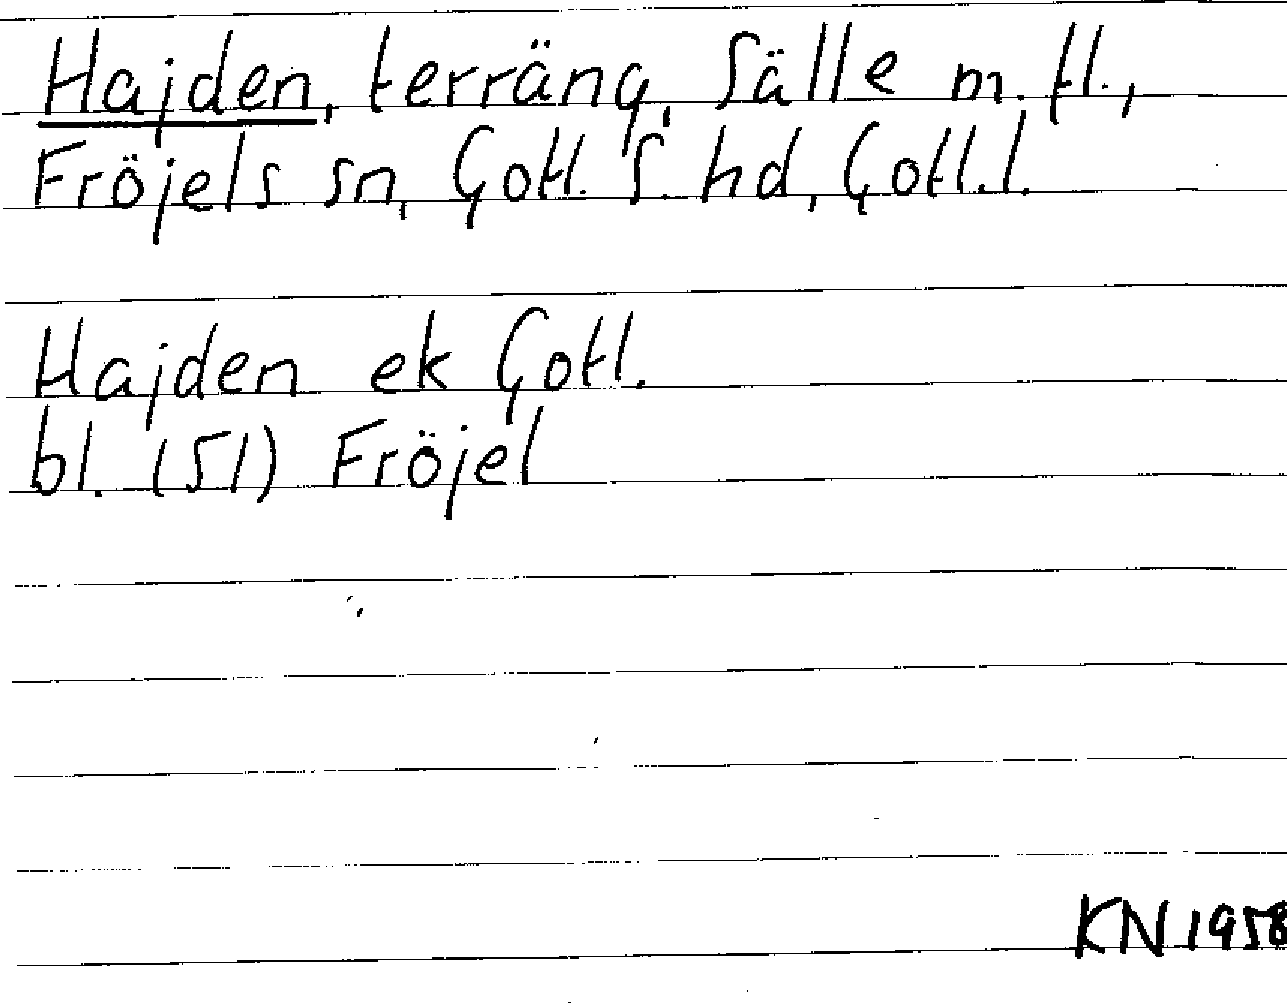 Hajden, terräng, Sälle m. fl.,
Fröjels sn, Gotl. S. hd, Gotl. l.
Hajden ek Gotl.
bl. (51) Fröjel
KN 1958